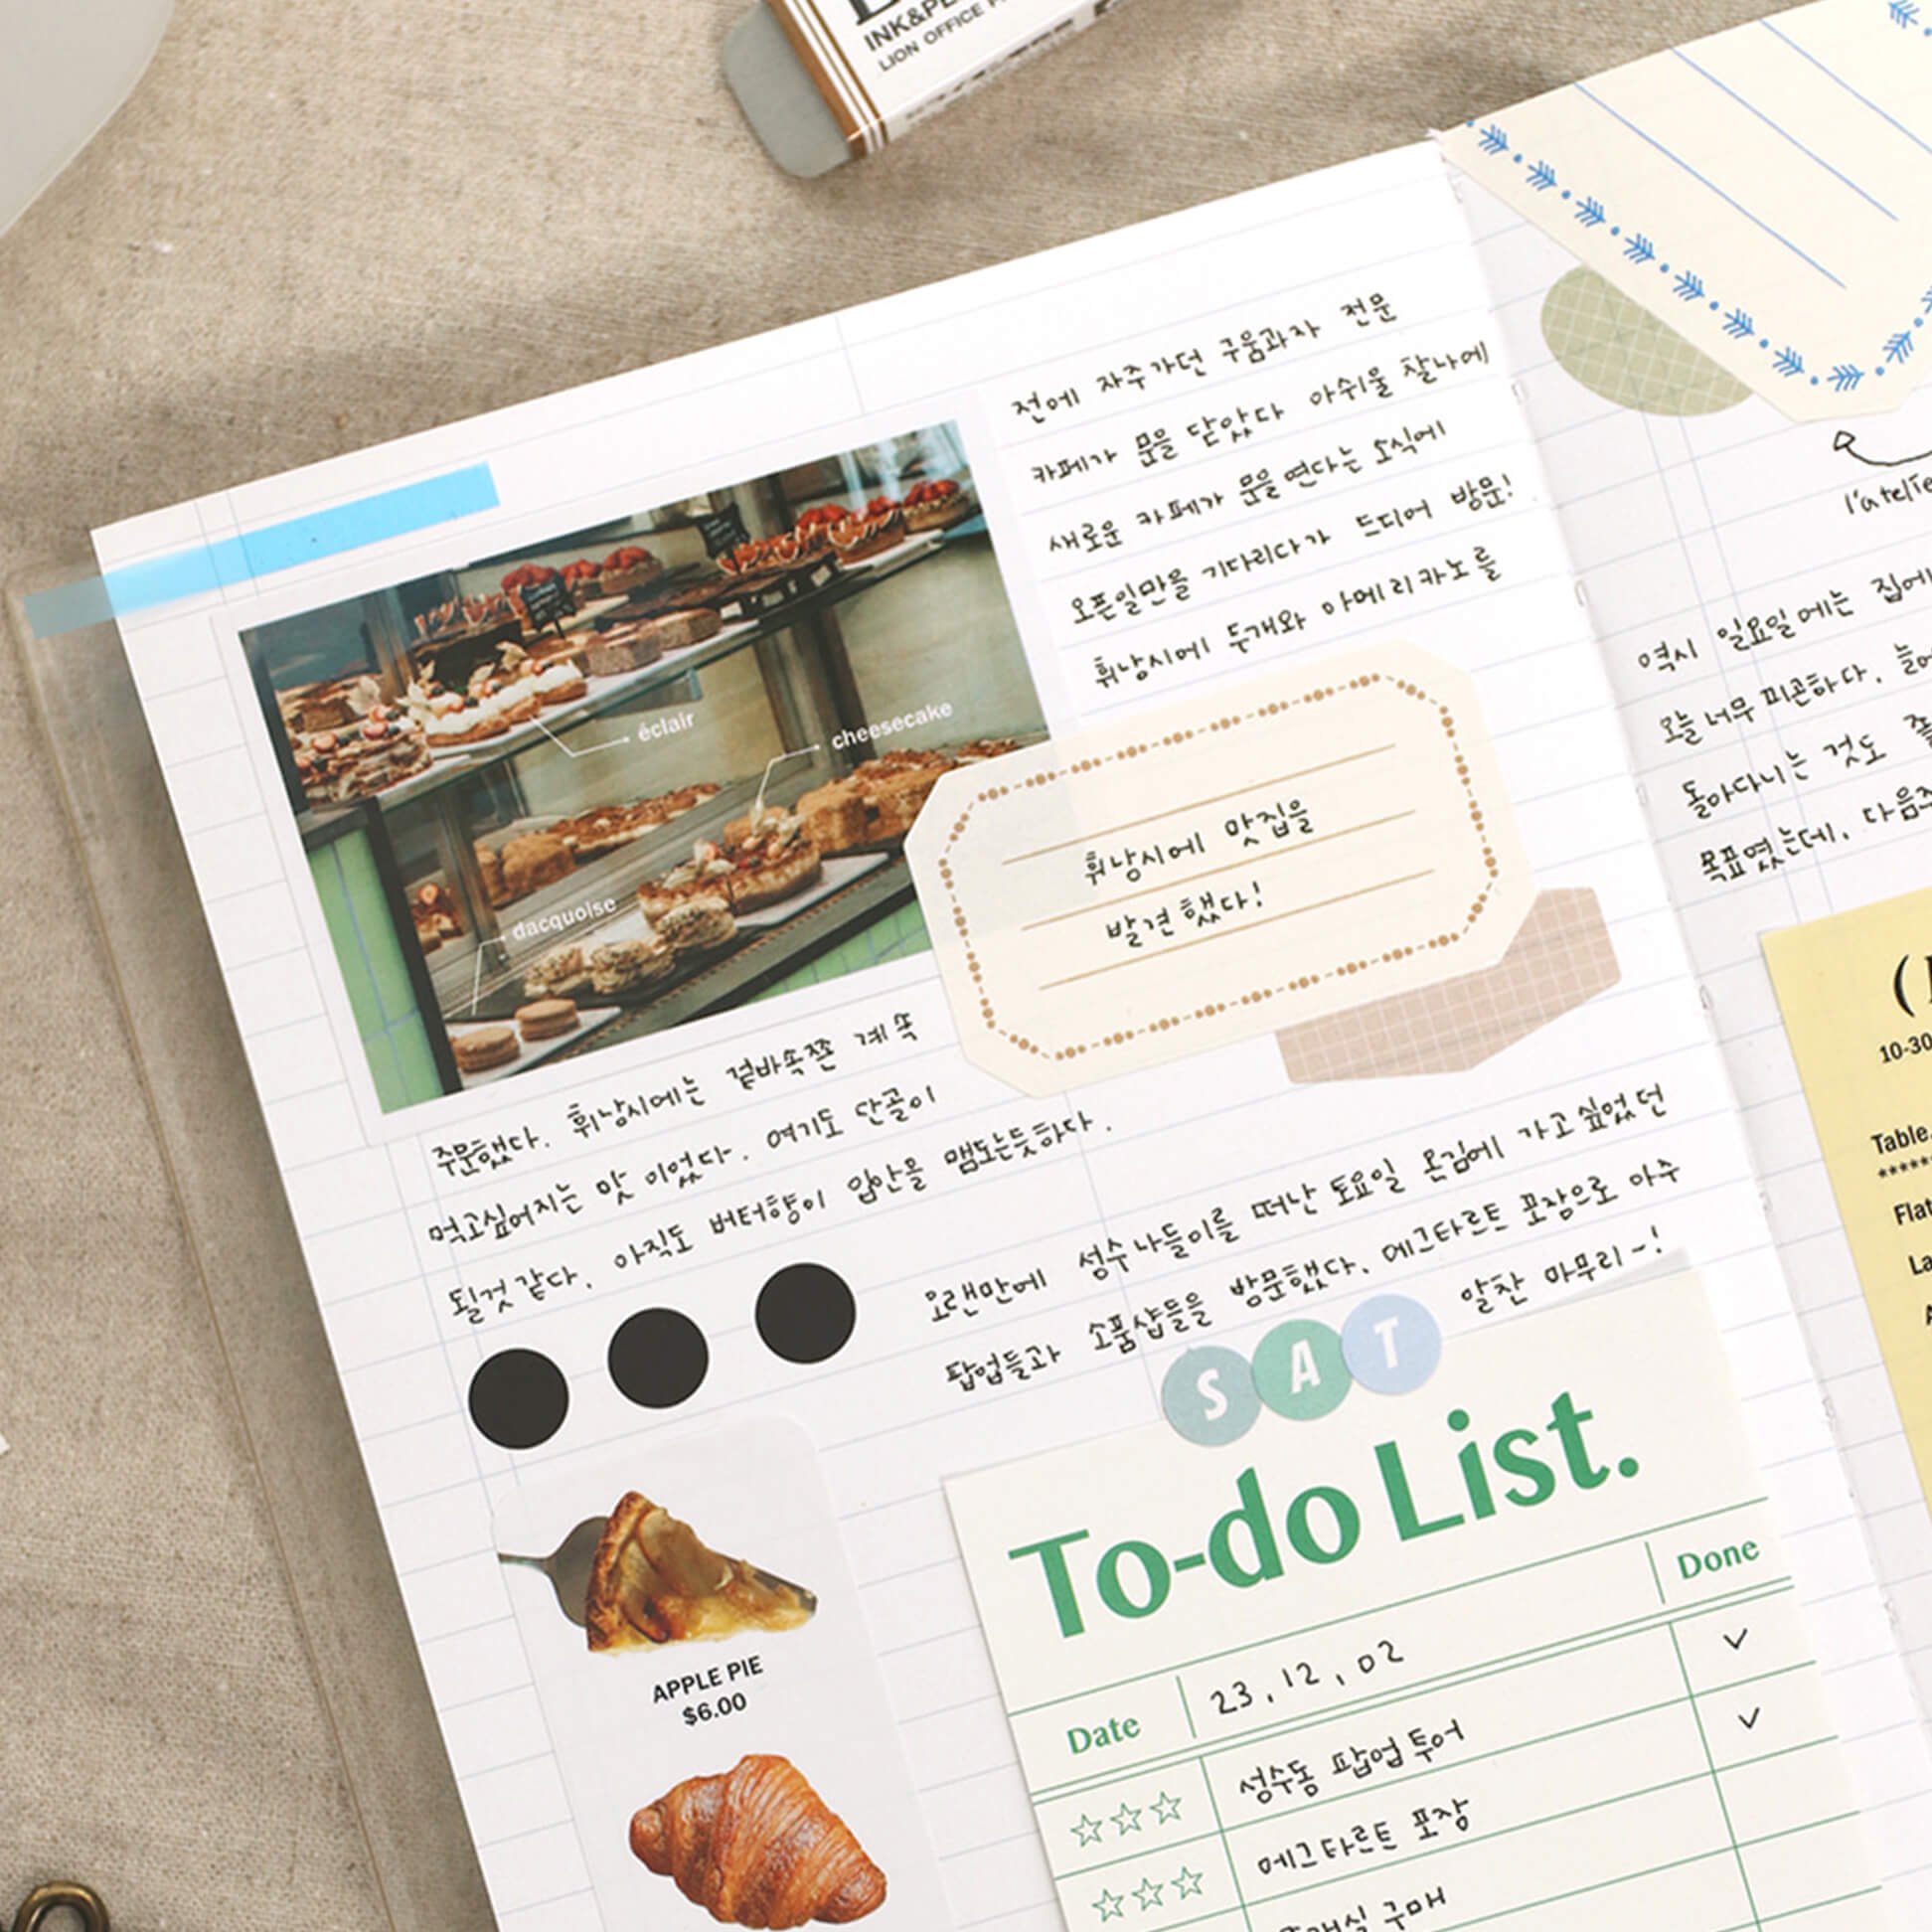 INK&PE
LION OFFICE P
전에 자주가던 구움과자 전문
카페가 문을 닫았다 아쉬울 찰나에
새로운 카페가 문을 연다는 소식에
오픈일만을 기다리다가 드디어 방문!
휘낭시에 두개와 아메리카노를
éclair
cheesecake
dacquoise
휘낭시에 맛집을
발견했다!
주문했다. 휘낭시에는 겉바속쫀 계속
먹고싶어지는 맛 이었다. 여기도 단골이
될것 같다. 아직도 버터향이 입안을 맴도는듯하다.
오랜만에 성수나들이를 떠난 토요일 온김에 가고싶었던
팝업들과 소품샵들을 방문했다. 에그타르트 포장으로 아주
알찬 마무리~!
SAT
To-do List.
Done
Date 23.12.02
성수동 팝업투어
에그타르트 포장
구매
APPLE PIE
$6.00
l'atelie
역시 일요일에는 집에
오늘 너무 피곤하다. 늘어
돌아다니는 것도
목표였는데, 다음주
10-30
Table.
******
Flat
La